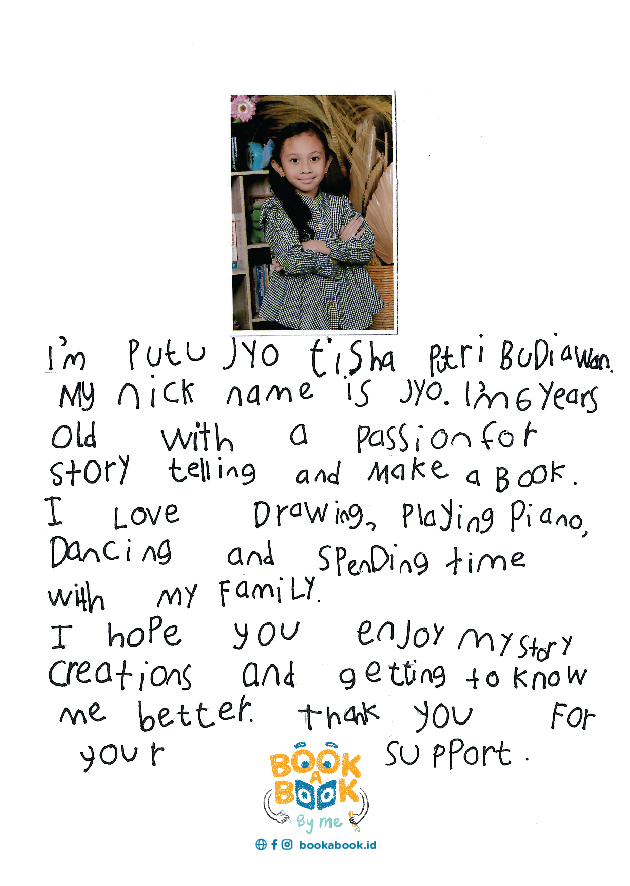 I'm Putu JYO tisha Putri BuDiawan.
My nick name is JYO. I'm 6 Years
old with a passion for
story telling and make a Book.
I Love Drawing, Playing Piano,
Dancing and SPenDing time
with my FamiLY.
I hoPe you enjoy my story
creations and getting to know
me better. thank you For
your support.
BOOK
A
BOOK
By me
bookabook.id